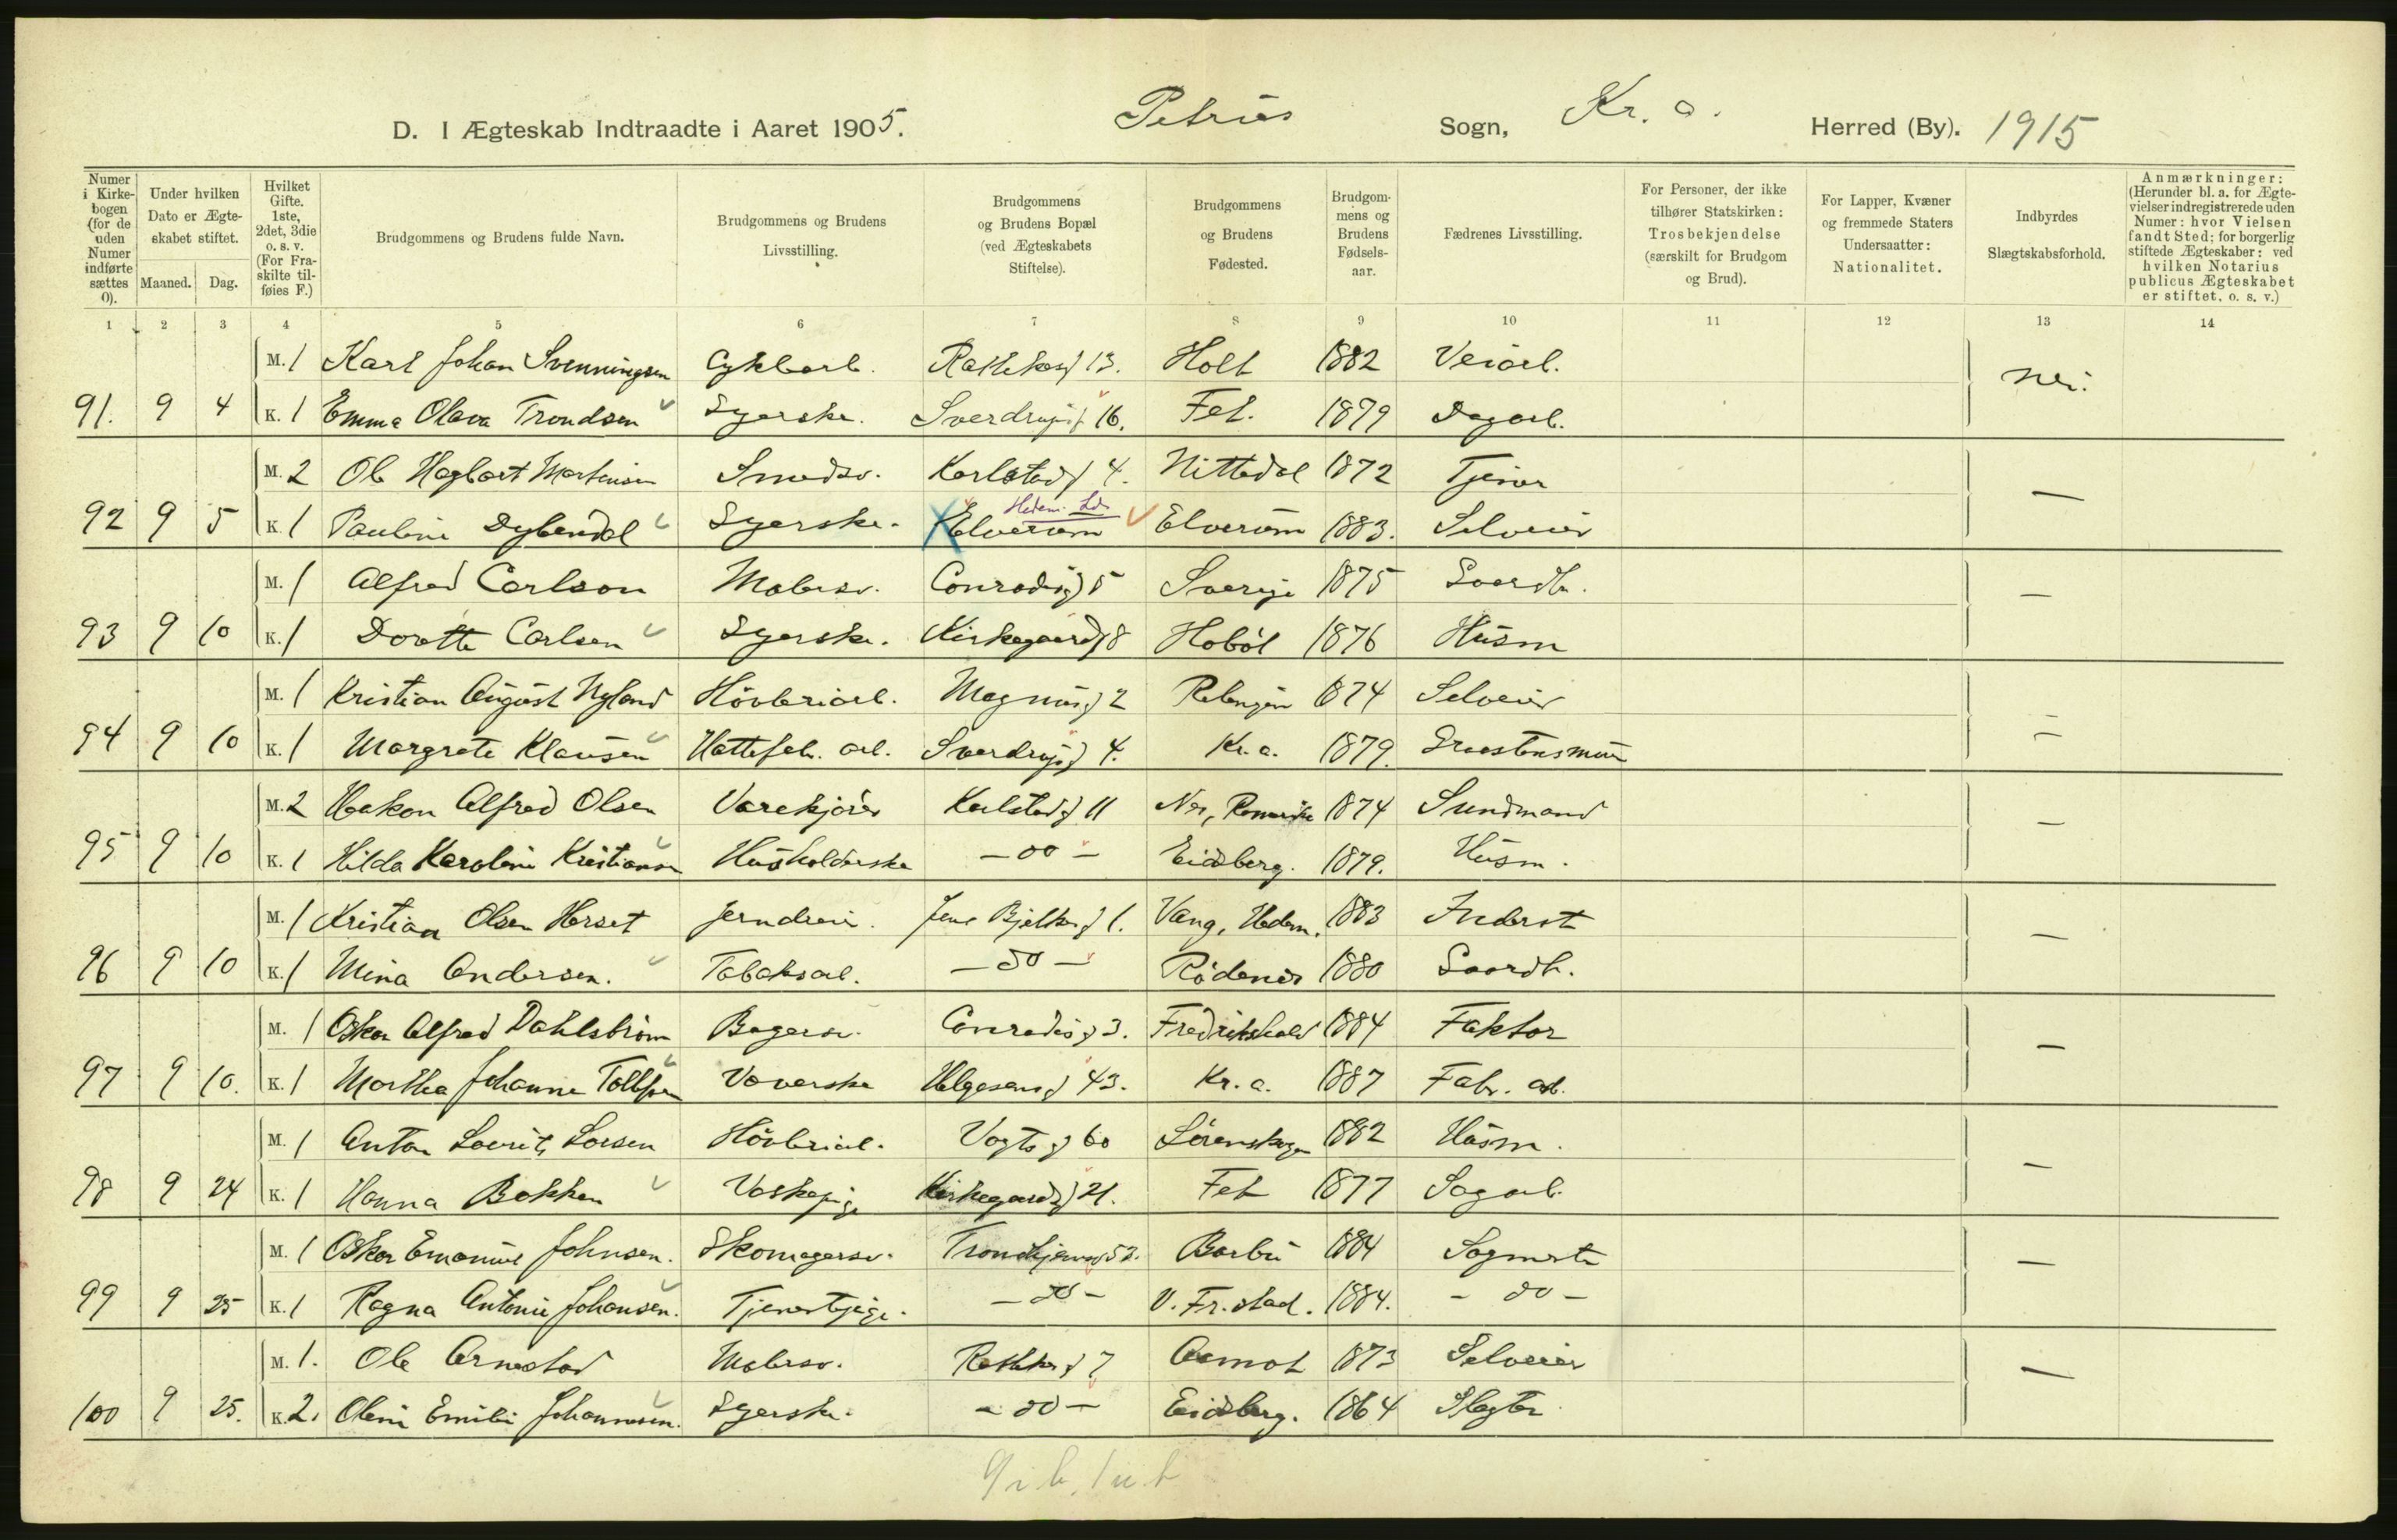 D. I Ægteskab Indtraadte i Aaret 1905. Petrus Sogn, Kr. a. Herred (By). 1915
Numer i Kirke-bogen (for de uden Numer indførte sættes 0).
Under hvilken Dato er Ægte-skabet stiftet.
Maaned. Dag.
Hvilket Gifte. 1ste, 2det, 3die o. s. v. (For Fra-skilte til-føies F.)
Brudgommens og Brudens fulde Navn.
Brudgommens og Brudens Livsstilling.
Brudgommens og Brudens Bopæl (ved Ægteskabets Stiftelse).
Brudgommens og Brudens Fødested.
Brudgom-mens og Brudens Fødsels-aar.
Fædrenes Livsstilling.
For Personer, der ikke tilhører Statskirken: Trosbekjendelse (særskilt for Brudgom og Brud).
For Lapper, Kvæner og fremmede Staters Undersaatter: Nationalitet.
Indbyrdes Slægtskabsforhold.
Anmærkninger: (Herunder bl. a. for Ægte-vielser indregistrerede uden Numer: hvor Vielsen fandt Sted; for borgerlig stiftede Ægteskaber: ved hvilken Notarius publicus Ægteskabet er stiftet, o. s. v.)
1 2 3 4 5 6 7 8 9 10 11 12 13 14
M. 1 Karl Johan Svenningsen Cyklearb. 13. Holt 1882 Veiarb. nei.
91. 9 4 K. 1 Emma Olava Trondsen Syerske. Sverdrupsg 16. Fet. 1879 Dagarb.
M. 2 Ole Hagbart Martinsen Smedsv. Karlstadg 4. Nittedal 1872 Tjener —
Hedem.
92 9 5 K. 1 Pauline Dybendal Syerske. Elverum Elverum 1883. Selveier
M. 1 Alfred Carlson Malersv. Conradisg 5 Sverige 1875 Gaardbr. —
93 9 10 K. 1 Dorthe Carlsen Syerske. Kirkegaardsg 8 Hobøl 1876 Husm
M. 1 Kristian August Nyland Høvleriarb. Magnusg 2 1874 Selveier
94 9 10 K. 1 Margrete Klausen Hattefab. arb. Sverdrupsg 4. Kr. a. 1879. —
M. 2 Hakon Alfred Olsen Varekjører Karlstadg 11 Nes, Romerike 1874 Sundmand —
95 9 10 K. 1 Hilda Karoline Kristiansen Husholderske — do — Eidsberg. 1879. Husm.
M. 1 Kristian Olsen Horset Jerndreier. Jens Bjelkesg 1. Vang, Hedem. 1883 Inderst —
96 9 10 K. 1 Mina Andersen. Tobaksarb. — do — Rødenes 1880 Gaardb.
M. 1 Oskar Alfred Dahlstrøm Bagersv. Conradisg 3. Fredrikshald 1884 Faktor —
97 9 10. K. 1 Martha Johanne Tollefsen Væverske Helgesensg 43. Kr. a. 1887 Fabr. arb.
M. 1 Anton Lauritz Larsen Høvleriarb. Vogtsg 60 Lørenskogen 1882 Husm. —
98 9 24 K. 1 Hanna Bakken Vaskepige Kirkegaardsg 21. Fet 1877 Sagarb.
M. 1 Oskar Emanuel Johnsen. Skomagersv. Trondhjemsv 53. Barbu 1884 Sagmester —
99 9 25 K. 1 Ragna Antonie Johansen. Tjenestepige. — do — V. Fr.stad. 1884. — do —
M. 1. Ole Arnestad Malersv. 7 Aamot 1873 Selveier —
100 9 25. K. 2. Oleni Emilie Johannesen. Syerske. — do — Eidsberg. 1864 Slagter
9 i b, 1 u b